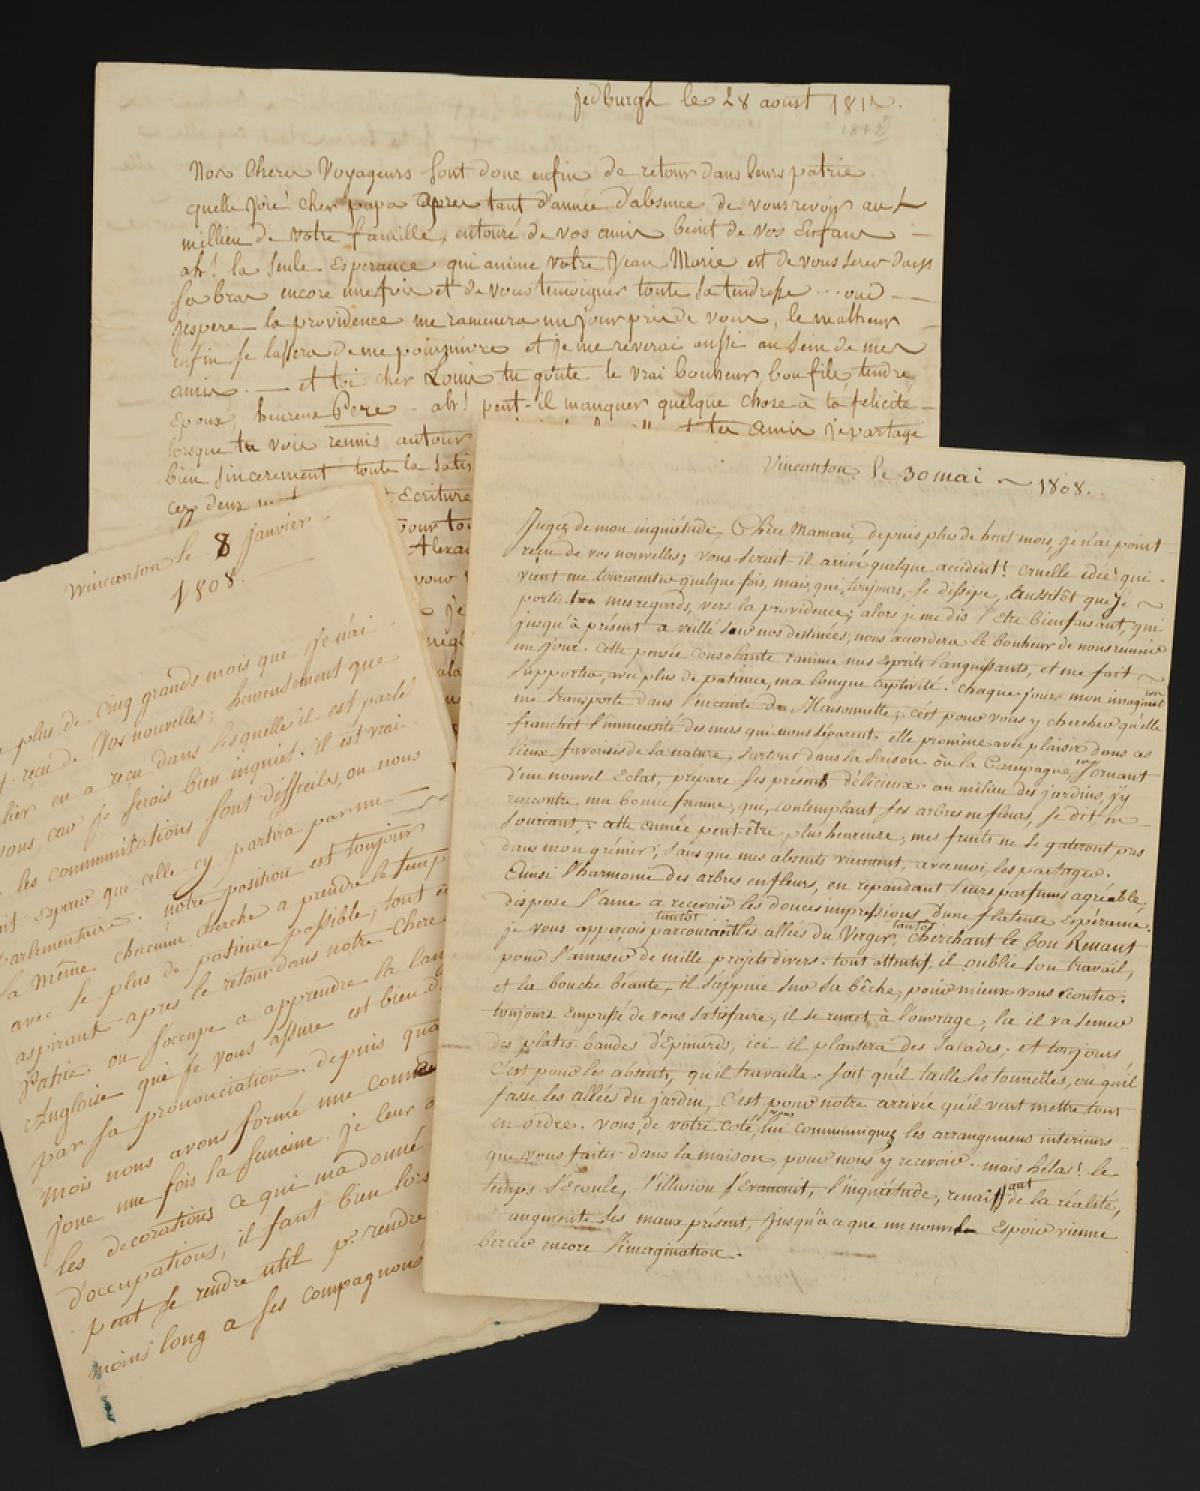 jedburgh le 28 aoust 1812.
1812
Nos Chers Voyageurs sont donc enfin de retour dans leurs patrie.
quelle joie! cher papa apres tant d'année d'absence de vous revoir au
millieu de votre famille, entouré de vos amis beint de vos Enfans
ah! la seule Esperance qui anime votre Jean Marie est de vous serer dans
sa bras encore une fois et de vous temoigner toute sa tendresse ... oui
j'espere la providence me ramenera un jour pres de vous, le malheur
enfin se lassera de me poursuivre et je me reverai aussi au sein de mes
amis. — et toi cher Louis tu goute le vrai bonheur, bon fils, tendre
Epoux, heureux Pere - ah! peut-il manquer quelque chose à ta felicité
lorsque tu voie reunis autour
tes amis je partage
bien sincerement toute la satis
ces deux
Ecriture
pour to
Alexa
vous
je
Wincanton le 8 janvier
1808.
plus de cinq grands mois que je n'ai
reçu de vos nouvelles; heureusement que
en a reçu dans lesquelles il est parlé
vous, car je serois bien inquiet. il est vrai
les communications sont difficiles, on nous
espere que celle cy partira par un
parlementaire. notre position est toujour
la même, chacune cherche a prendre le temp
avec le plus de patience possible, tout en
aspirant apres le retour dans notre Chere
Patrie. on s'occupe a apprendre la lan
Anglaise que je vous assure est bien d
par sa prononciation. depuis qua
mois nous avons formé une comé
joue une fois la semaine. je leur a
les decorations ce qui m'a donné
d'occupations, il faut bien lors
peut se rendre util pr. rendre
moins long a ses compagnons
Vincanton le 30 mai 1808.
Jugez de mon inquiétude, Chère Maman, depuis plus de huit mois, je n'ai point
reçu de vos nouvelles; vous serait-il arrivé quelque accident! cruelle idée! qui
vient me tourmenter quelque fois, mais, qui, toujours, se dissipe, aussitôt que je
porte mes regards, vers la providence; alors je me dis l'Etre bienfaisant, qui
jusqu'à présent a veillé sur nos destinées, nous accordera le bonheur de nous reunir
un jour. cette pensée consolante ranime mes Esprits languissants, et me fait
supporter, avec plus de patience, ma longue captivité. chaque jours mon imagination
me transporte dans l'enceinte de Maisonnette; c'est pour vous y chercher qu'elle
franchit l'immensité des mers qui nous séparent. elle promène avec plaisir dans ces
lieux favorisés de la nature, surtout dans la saison ou la Campagne, se ornant
d'un nouvel Eclat, prepare ses présents délicieux. au milieu des jardins, j'y
rencontre ma bonne femme, qui, contemplant ses arbres en fleurs, se dit en
souriant: cette année peut être plus heureuse, mes fruits ne se gateront pas
dans mon grenier, sans que mes absents viennent, avec moi, les partager.
Einsi l'harmonie des arbres en fleurs, en repandant leurs parfums agréable,
dispose l'ame a recevoir les douces impressions d'une flatente Espérance.
je vous apperçois tantôt parcourant les allées du Verger, tantôt Cherchant le bon Renaut
pour l'amuser de mille projets divers. tout attentif, il oublie son travail,
et la bouche béante, il s'appuie sur sa bêche, pour mieux vous Ecouter.
toujours Empressé de vous satisfaire, il se remet à l'ouvrage, la il va semer
des plates bandes d'Epinards, ici il plantera des salades; et toujours
C'est pour les absents, qu'il travaille. soit qu'il taille les tonnelles, ou qu'il
fasse les allées du jardin, c'est pour notre arrivée qu'il veut mettre tout
en ordre. vous, de votre coté, lui communiquez les arrangemens intérieurs
que vous faites dans la maison pour nous y recevoir. mais hélas! le
temps s'Ecoule, l'illusion s'Evanouit, l'inquiétude, renaissant de la réalité,
augmente les maux présent, jusqu'à ce que un nouvel Espoir vienne
bercer encore l'imagination.